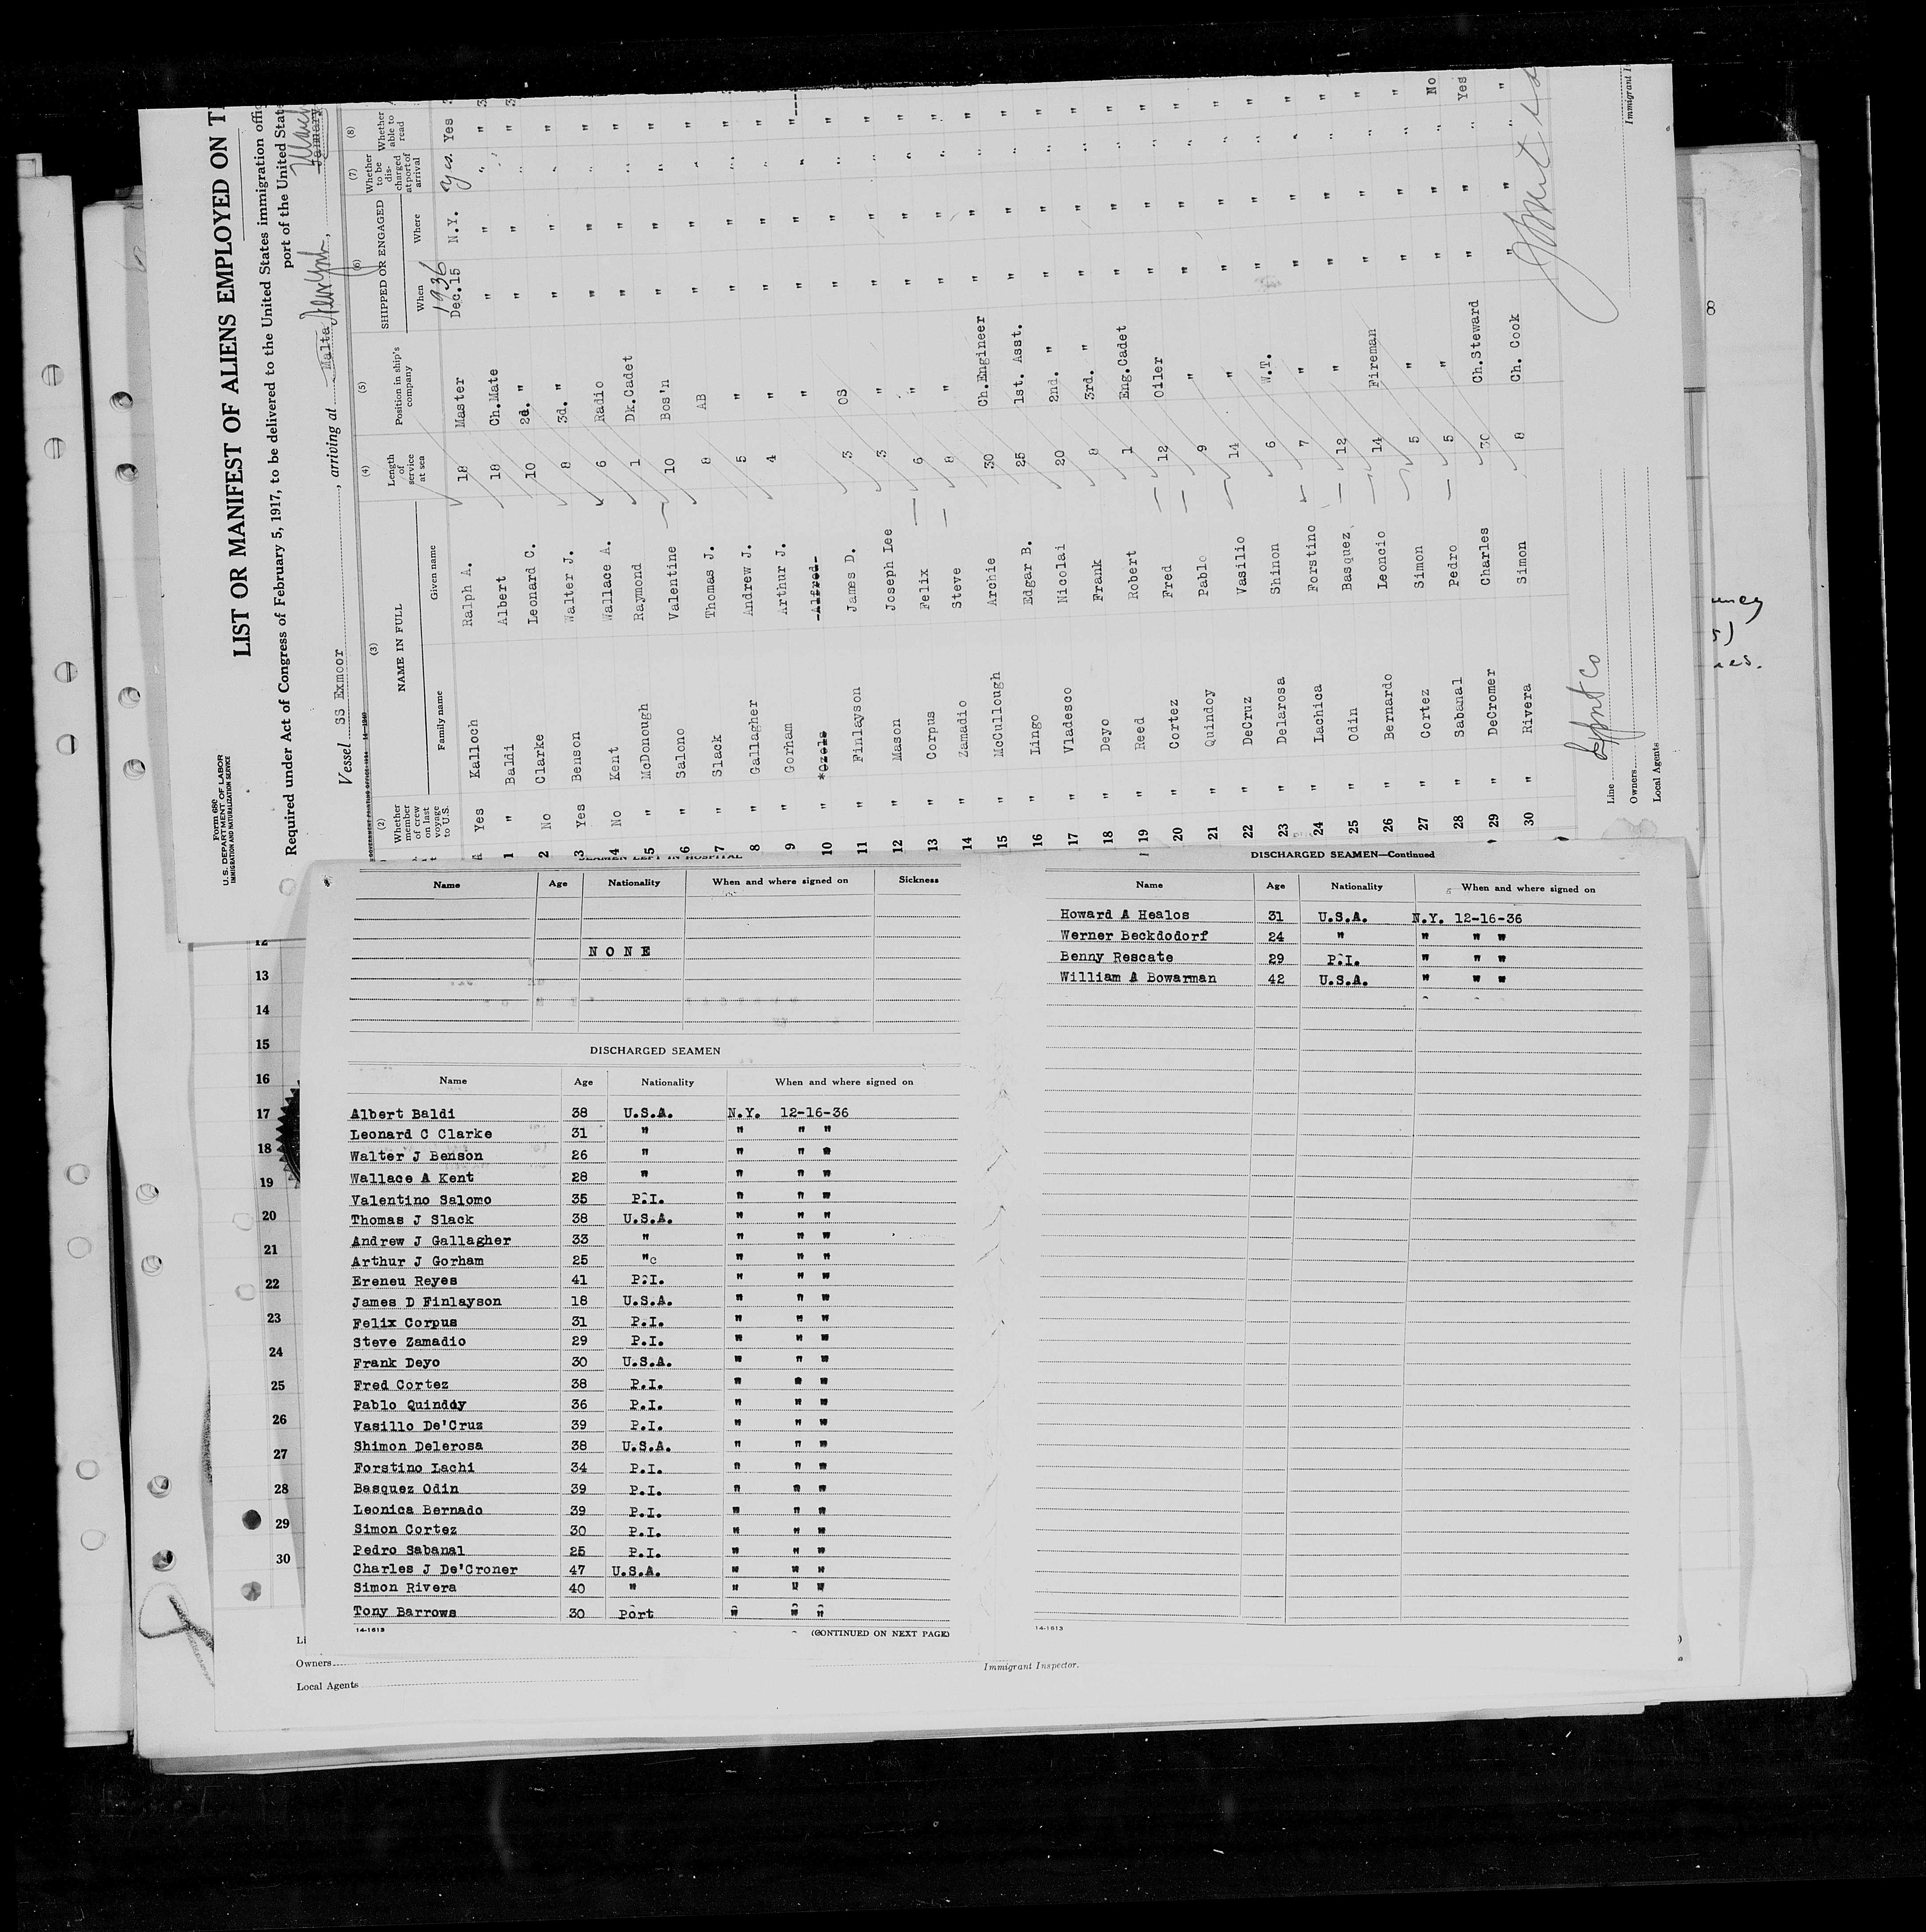 Form 680
U. S. DEPARTMENT OF LABOR
IMMIGRATION AND NATURALIZATION SERVICE
LIST OR MANIFEST OF ALIENS EMPLOYED ON T
Required under Act of Congress of February 5, 1917, to be delivered to the United States immigration offic
port of the United State
Vessel SS Exmoor , arriving at Malta New York ,
(2) (3) (4) (5) (6) (7) (8)
Whether member of crew on last voyage to U.S. NAME IN FULL Length of service at sea Position in ship's company SHIPPED OR ENGAGED Whether to be discharged at port of arrival Whether able to read
Family name Given name When Where
1936
A Yes Kalloch Ralph A. 18 Master Dec.15 N.Y. Yes Yes
1 " Baldi Albert 18 Ch.Mate " " " "
2 No Clarke Leonard C. 10 2d. " " " " "
3 Yes Benson Walter J. 8 3d. " " " " "
4 No Kent Wallace A. 6 Radio " " " "
5 " McDonough Raymond 1 Dk.Cadet " " " "
6 " Salono Valentine 10 Bos'n " " " "
7 " Slack Thomas J. 8 AB " " " "
8 " Gallagher Andrew J. 5 " " " " "
9 " Gorham Arthur J. 4 " " " " "
10 " Alfred " " " " "
11 " Finlayson James D. 3 OS " " " "
12 " Mason Joseph Lee 3 " " " " "
13 " Corpus Felix 6 " " " " "
14 " Zamadio Steve 8 " " " " "
15 " McCullough Archie 30 Ch.Engineer " " " "
16 " Lingo Edgar B. 25 1st. Asst. " " " "
17 " Vladesco Nicolai 20 2nd. " " " " "
18 " Deyo Frank 8 3rd. " " " " "
19 " Reed Robert 1 Eng.Cadet " " " "
20 " Cortez Fred 12 Oiler " " " "
21 " Quindoy Pablo 9 " " " " "
22 " DeCruz Vasilio 14 " " " " "
23 " Delarosa Shinon 6 W.T. " " " "
24 " Lachica Forstino 7 " " " " "
25 " Odin Basquez 12 " " " " "
26 " Bernardo Leoncio 14 Fireman " " " "
27 " Cortez Simon 5 " " " " No
28 " Sabanal Pedro 5 " " " " Yes
29 " DeCromer Charles 30 Ch.Steward " " " "
30 " Rivera Simon 8 Ch. Cook " " "
Line
Owners
Local Agents
SEAMEN LEFT IN HOSPITAL
Name Age Nationality When and where signed on Sickness
NONE
DISCHARGED SEAMEN
Name Age Nationality When and where signed on
Albert Baldi 38 U.S.A. N.Y. 12-16-36
Leonard C Clarke 31 " " " "
Walter J Benson 26 " " " "
Wallace A Kent 28 " " " "
Valentino Salomo 35 P.I. " " "
Thomas J Slack 38 U.S.A. " " "
Andrew J Gallagher 33 " " " "
Arthur J Gorham 25 " " " "
Ereneu Reyes 41 P.I. " " "
James D Finlayson 18 U.S.A. " " "
Felix Corpus 31 P.I. " " "
Steve Zamadio 29 P.I. " " "
Frank Deyo 30 U.S.A. " " "
Fred Cortez 38 P.I. " " "
Pablo Quinddy 36 P.I. " " "
Vasillo De'Cruz 39 P.I. " " "
Shimon Delerosa 38 U.S.A. " " "
Forstino Lachi 34 P.I. " " "
Basquez Odin 39 P.I. " " "
Leonica Bernado 39 P.I. " " "
Simon Cortez 30 P.I. " " "
Pedro Sabanal 25 P.I. " " "
Charles J De'Croner 47 U.S.A. " " "
Simon Rivera 40 " " " "
Tony Barrows 30 Port " " "
14-1613
(CONTINUED ON NEXT PAGE)
DISCHARGED SEAMEN—Continued
Name Age Nationality When and where signed on
Howard A Healos 31 U.S.A. N.Y. 12-16-36
Werner Beckdodorf 24 " " " "
Benny Rescate 29 P.I. " " "
William A Bowarman 42 U.S.A. " " "
14-1613
12
13
14
15
16
17
18
19
20
21
22
23
24
25
26
27
28
29
30
Li
Owners
Local Agents
Immigrant Inspector.